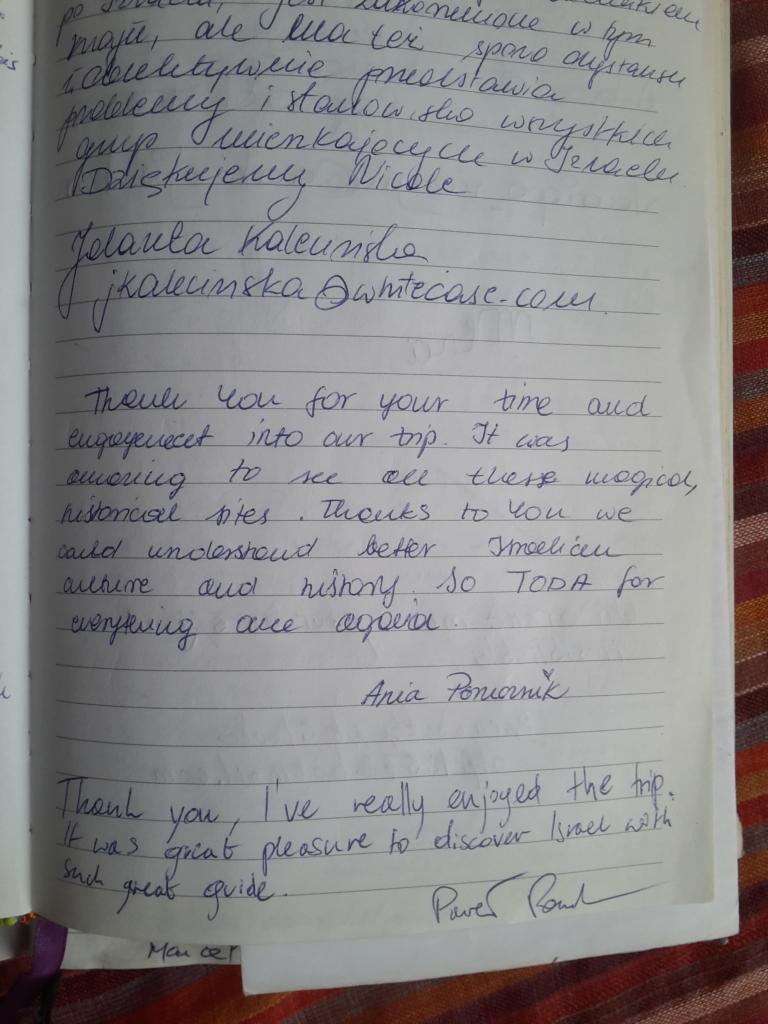 po jest zakorzenione w tym
kraju, ale ma też sporo dystansu
i obiektywnie przedstawia
problemy i stanowisko wszystkich
grup mieszkających w Izraelu.
Dziękujemy Nicole
Jolanta Kalecińska
jkalecinska@whitecase.com
Thank You for your time and
engagement into our trip. It was
amazing to see all these magical,
historical sites. Thanks to You we
could understand better Israelian
culture and history. So TODA for
everything one again.
Ania
Thank you, I've really enjoyed the trip.
It was great pleasure to discover Israel with
such great guide.
Paweł
Marcel